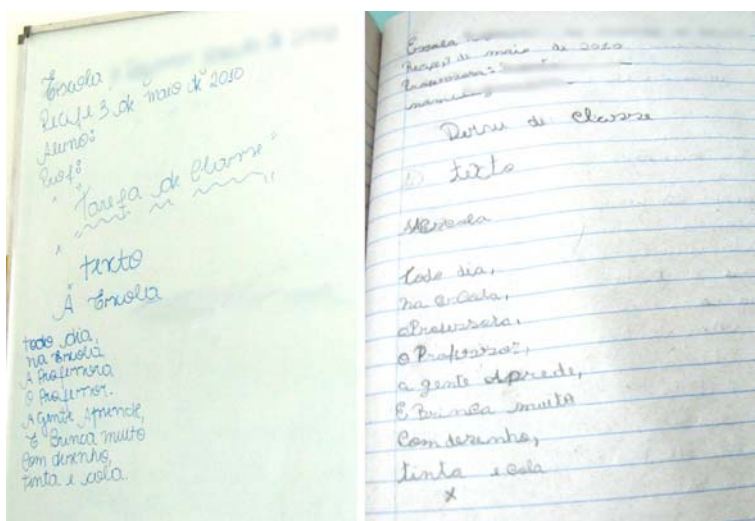 Escola
Recife 3 de maio de 2010
Aluno:
Prof:
"Tarefa de Classe"
texto
A Escola
todo dia,
na Escola
A Professora
O Professor.
A gente Aprende,
E Brinca muito
Com desenho,
tinta e cola.
Escola
Recife de maio de 2010
Professora:
de Classe
1) texto
A Escola
Todo dia,
na escola,
a Professora,
o Professor,
a gente aprede,
E Brinca muito
Com desenho,
tinta e cola
x